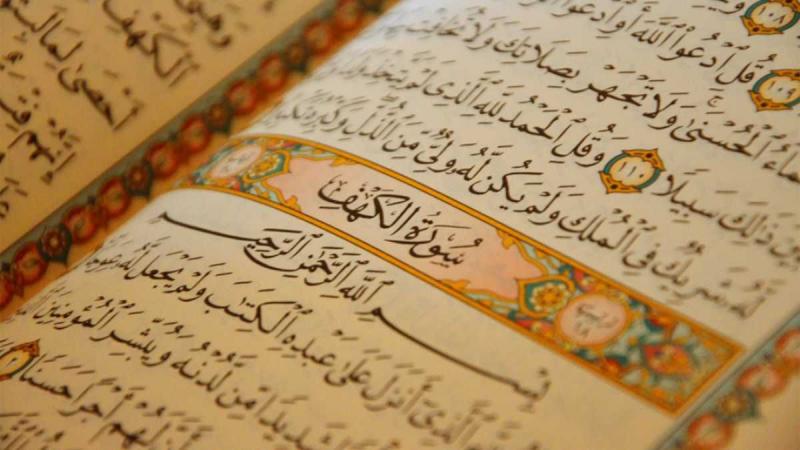 ١٠٨
١٠٩ قُلِ ٱدْعُوا۟ ٱللَّهَ أَوِ ٱدْعُوا۟
ٱلْحُسْنَىٰ وَلَا تَجْهَرْ بِصَلَاتِكَ وَلَا تُخَافِتْ
بَيْنَ ذَٰلِكَ سَبِيلًا ١١٠ وَقُلِ ٱلْحَمْدُ لِلَّهِ ٱلَّذِى لَمْ يَتَّخِذْ
لَّهُۥ شَرِيكٌ فِى ٱلْمُلْكِ وَلَمْ يَكُن لَّهُۥ وَلِىٌّ مِّنَ ٱلذُّلِّ وَكَبِّرْهُ تَكْبِيرًا
سُورَةُ الكَهْفِ
بِسْمِ ٱللَّهِ ٱلرَّحْمَٰنِ ٱلرَّحِيمِ
ٱلَّذِىٓ أَنزَلَ عَلَىٰ عَبْدِهِ ٱلْكِتَٰبَ وَلَمْ يَجْعَل لَّهُۥ عِوَجَا
شَدِيدًا مِّن لَّدُنْهُ وَيُبَشِّرَ ٱلْمُؤْمِنِينَ
لَهُمْ أَجْرًا حَسَنًا
ٱلْكَهْفِ
أَحْصَىٰ لِمَا